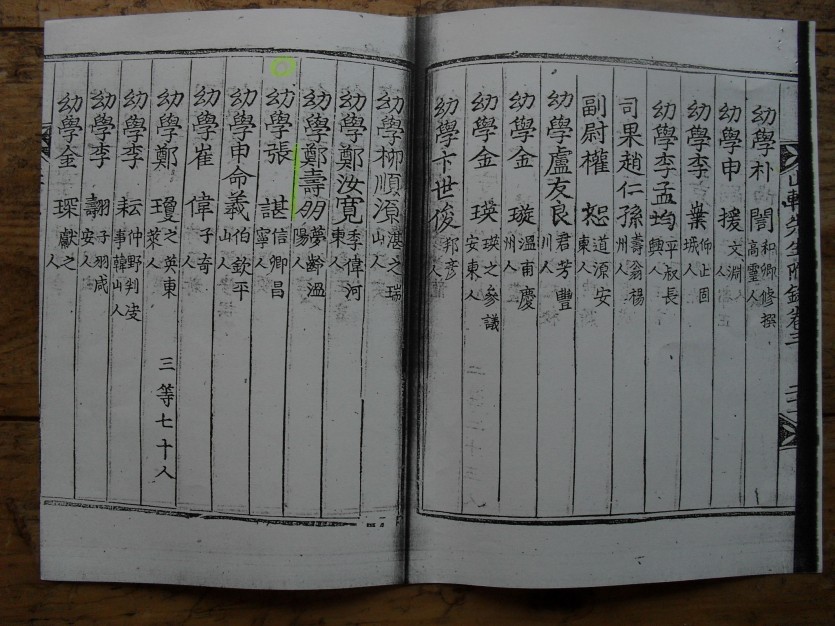 軒先生附錄卷三
幼學朴 誾 和卿修撰高靈人
幼學申 援 文淵 人
幼學李 業 仰止固城人
幼學李孟均 平叔長興人
司果趙仁孫 壽翁楊州人
副尉權 恕 道源安東人
幼學盧友良 君芳豐川人
幼學金 璇 溫甫慶州人
幼學金 瑛 瑛之參議安東人
幼學卞世俊 邦彦 人
幼學柳順源 湛之瑞山人
幼學鄭汝寬 季偉河東人
幼學鄭壽朋 夢齡溫陽人
幼學張 諶 信卿昌寧人
幼學申命義 伯欽平山人
幼學崔 偉 子奇 人
幼學鄭 瓊 之英東萊人
三等七十人
幼學李 耘 仲野判事韓山人
幼學李 翿 子羽咸安人
幼學金 琛 獻之 人